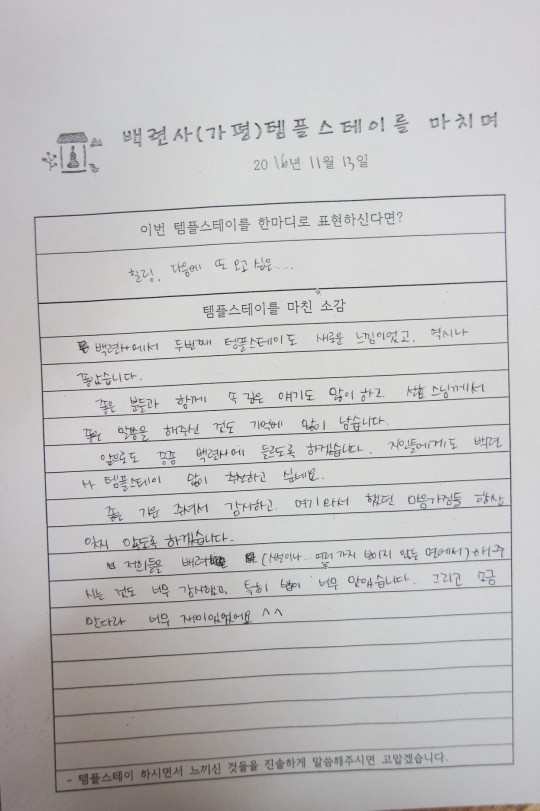 백련사(가평)템플스테이를 마치며
2016년 11월 13일
이번 템플스테이를 한마디로 표현하신다면?
힐링, 다음에 또 오고 싶은....
템플스테이를 마친 소감
백련사에서 두번째 템플스테이도 새로운 느낌이었고, 역시나
좋았습니다.
좋은 분들과 함께 속 깊은 얘기도 많이 하고 스님께서
좋은 말씀을 해주신 것도 기억에 많이 남습니다.
앞으로도 종종 백련사에 들르도록 하겠습니다. 지인들에게도 백련
사 템플스테이 많이 추천하고 싶네요.
좋은 기운 주셔서 감사하고, 여기 와서 했던 마음가짐들 항상
잊지 않도록 하겠습니다.
저희들을 배려 (시설이나.. 여러 가지 보이지 않는 면에서) 해 주
시는 것도 너무 감사했고, 특히 밥이 너무 맛있습니다. 그리고 소금
만다라 너무 재미있었어요 ^^
- 템플스테이 하시면서 느끼신 것들을 진솔하게 말씀해주시면 고맙겠습니다.